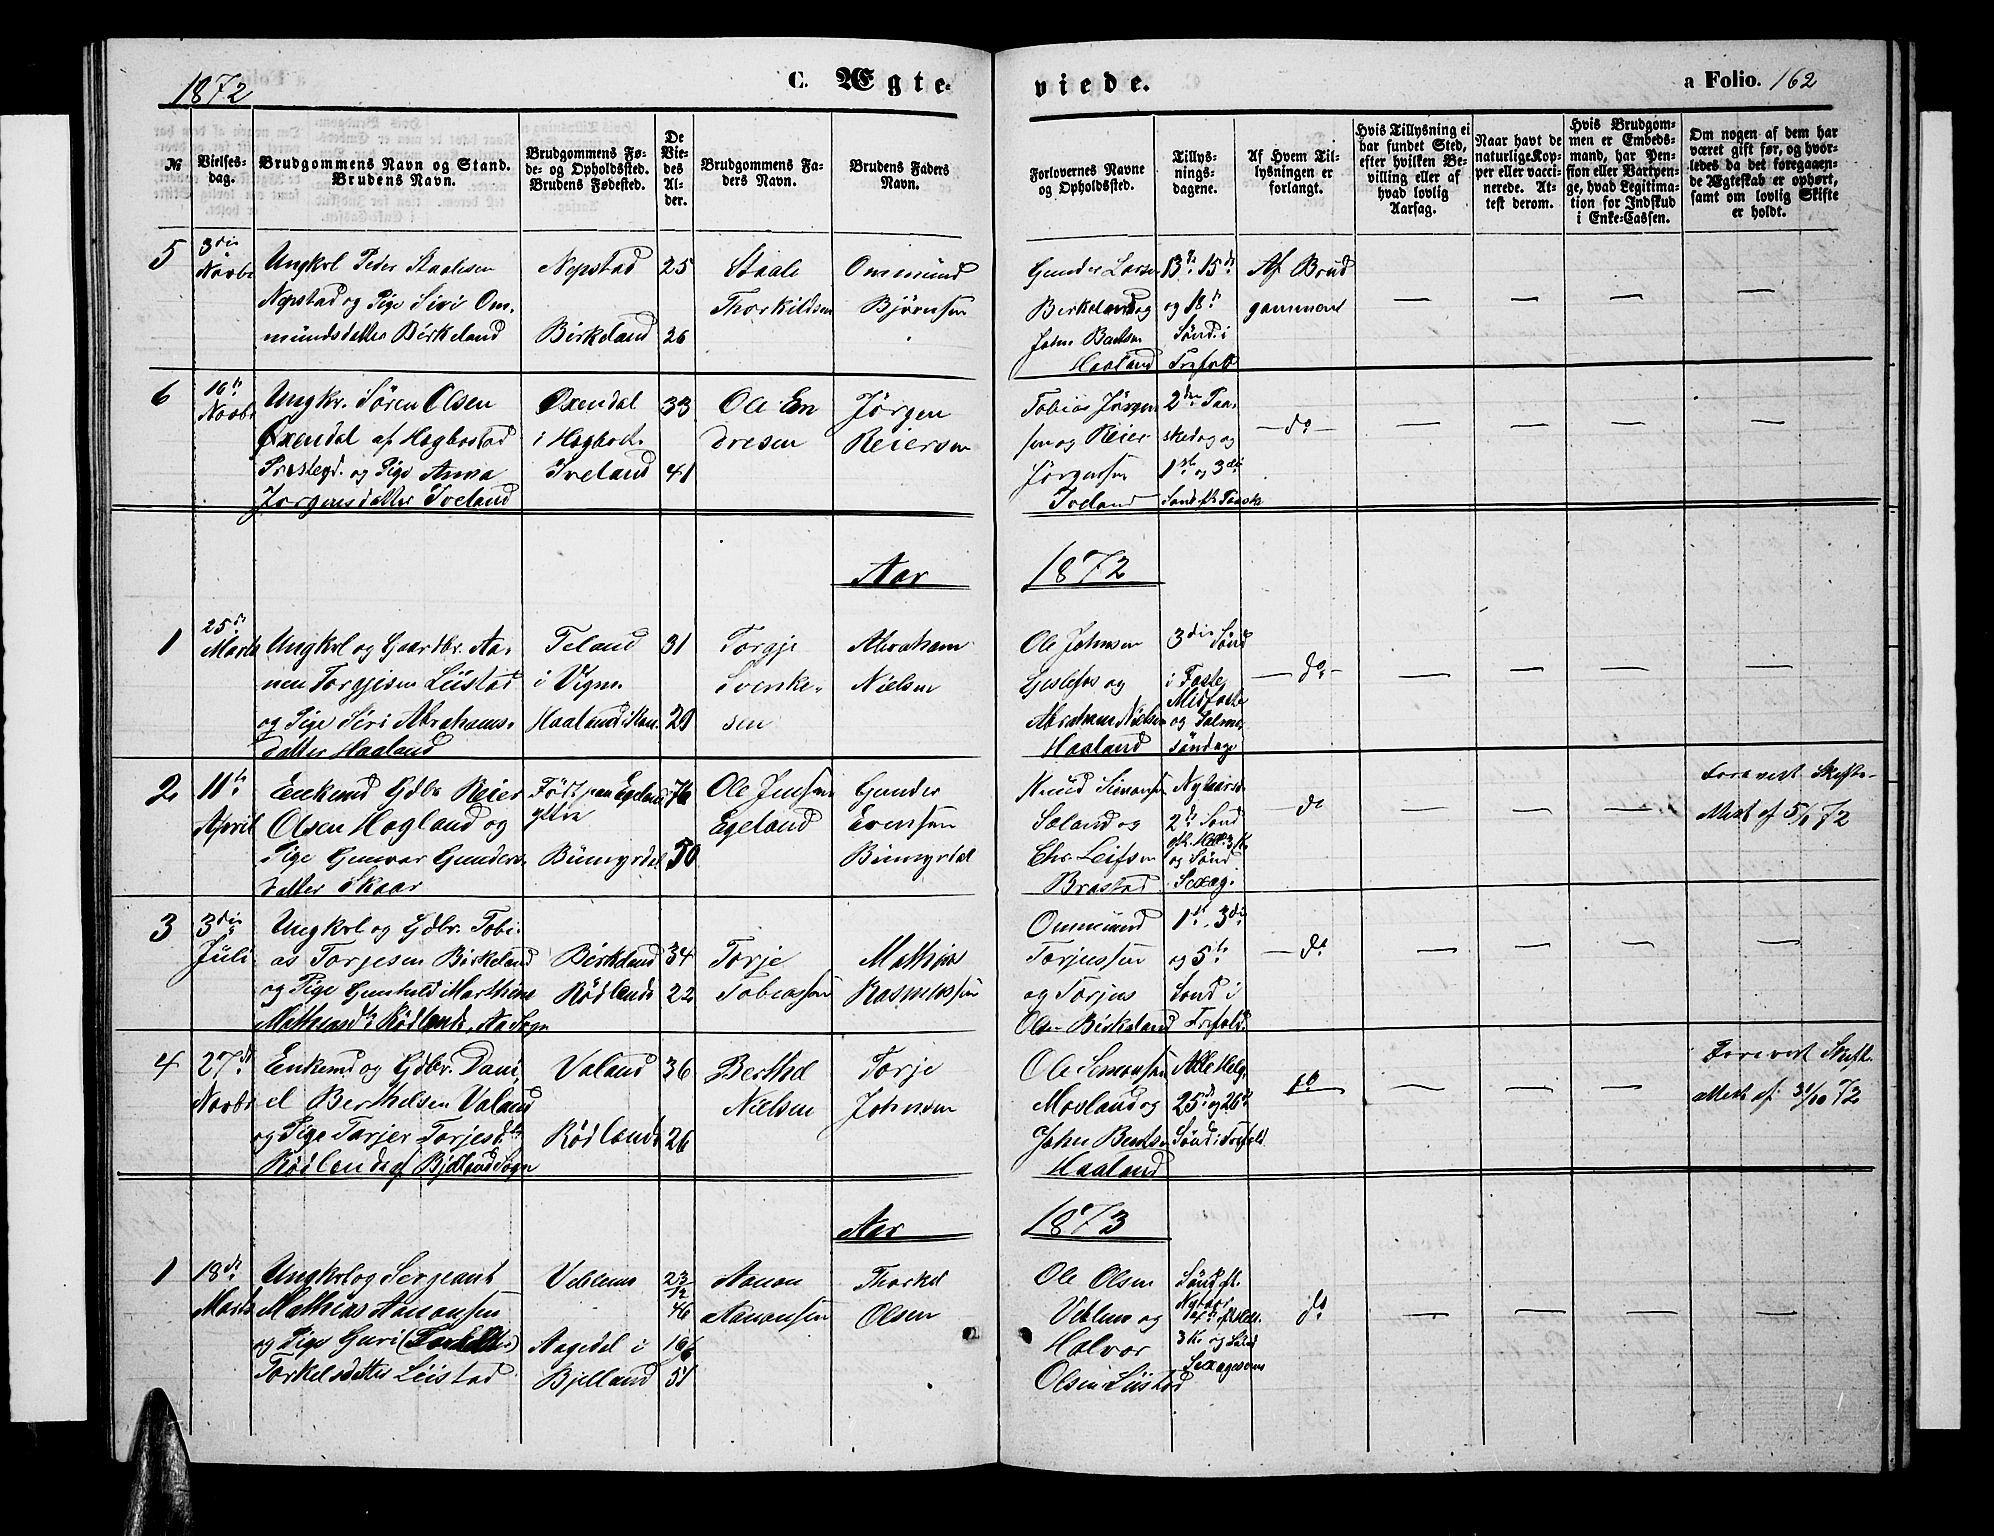 1872
C. Ægte-
viede.
a Folio. 162
No
Vielses-
dag.
Brudgommens Navn og Stand.
Brudens Navn.
Brudgommens Fø-
de- og Opholdssted.
Brudens Fødested.
De
Vie-
des
Al-
der.
Brudgommens Fa-
ders Navn.
Brudens Faders
Navn.
Forlovernes Navne
og Opholdssted.
Tillys-
nings-
dagene.
Af Hvem Til-
lysningen er
forlangt.
Hvis Tillysning ei
har fundet Sted,
efter hvilken Be-
villing eller af
hvad lovlig
Aarsag.
Naar havt de
naturlige Kop-
per eller vacci-
nerede. At-
test derom.
Hvis Brudgom-
men er Embeds-
mand, har Pen-
sion eller Vartpen-
ge, hvad Legitima-
tion for Indskud
i Enke-Cassen.
Om nogen af dem har
været gift før, og hvor-
ledes da det foregaaen-
de Ægteskab er ophørt,
samt om lovlig Skifte
er holdt.
5
3die
Novbr
Ungkrl Peder Staalesen
Nepstad og Pige Siri Om-
mundsdatter Birkeland
Nepstad
Birkeland
25
26
Staale
Thorkildsen
Ommund
Bjørnsen
Gunder Larsen
Birkeland og
John Bentsen
Haaland
13de 15de
og 18de
Sønd. i
Trefold
Af Brud
gommen
6
16de
Novbr
Ungkr. Sören Olsen
Øxendal af Hægbostad
Præstegd. og Pige Anna
Jørgensdatter Iveland
Øxendal
i Hægbost.
Iveland
33
41
Ole En
dresen
Jørgen
Reiersen
Tobias Jørgen
sen og Reier
Jørgensen
Iveland
2den Paa-
skedag og
1ste og 3die
Sønd. eft. Paaske
do
Aar
1872
1
25de
Marts
Ungkrl og Gaardbr. Aa-
nen Torgjesen Leistad
og Pige Siri Abrahams-
datter Haaland
Teland
i Vigm.
Haaland
31
29
Torgje
Svenke-
sen
Abraham
Nielsen
Ole Johnsen
Gislefos og
Abraham Nielsen
Haaland
3die Sønd
i Faste
Midfaste
og Palme
søndage
do
2
11te
April
Enkemd Gdbr Reier
Olsen Hogland og
Pige Gunvor Gunders-
datter Skaar
Født paa Egeland
ytre
Bunnyrdal
76
50
Ole Jensen
Egeland
Gunder
Evensen
Bunnyrdal
Knud Simonsen
Søland og
Chr. Leifsen
Brastad
Nytaarsd.
2de Sønd
eft. Hell. 3 K
og Sønd
Sexag.
do
Forevist Skifte-
Attest af 5/1 72
3
3die
Juli
Ungkrl og Gdbr. Tobi-
as Torjesen Birkeland
og Pige Gunhild Marthine
Mathiasdr Rödlands, Aa Sogn
Birkeland
Rödlands
34
22
Torje
Tobiassen
Mathias
Rasmussen
Ommund
Torjussen
og Torjus
Olsen Birkeland
1ste 3die
og 5te
Sønd i
Trefold.
do
4
27de
Novbr
Enkemd og Gdbr. Dani-
el Berthelsen Valand
og Pige Torjer Torjesdtr
Rödlands af Bjelland Sogn
Valand
Rödlands
36
26
Berthel
Nielsen
Torje
Johnsen
Ole Simonsen
Mosland og
John Bentsen
Haaland
Alle Helg.
25de og 26de
Sønd i Trefold.
do
Forevist Skifte-
Attest af 31/10 72
Aar
1873
1
18de
Marts
Ungkrl og Sergeant
Mathias Aanonsen
og Pige Guri
Torkelsdatter Leistad
Veblens
Aagedal i
Bjelland
23
Aanon
Aanonsen
Thorkel
Olsen
Ole Olsen
Veblens og
Halvor
Olsen Liistad
Sønd eft.
Nytaar
3 K. og
Sexagesima
do